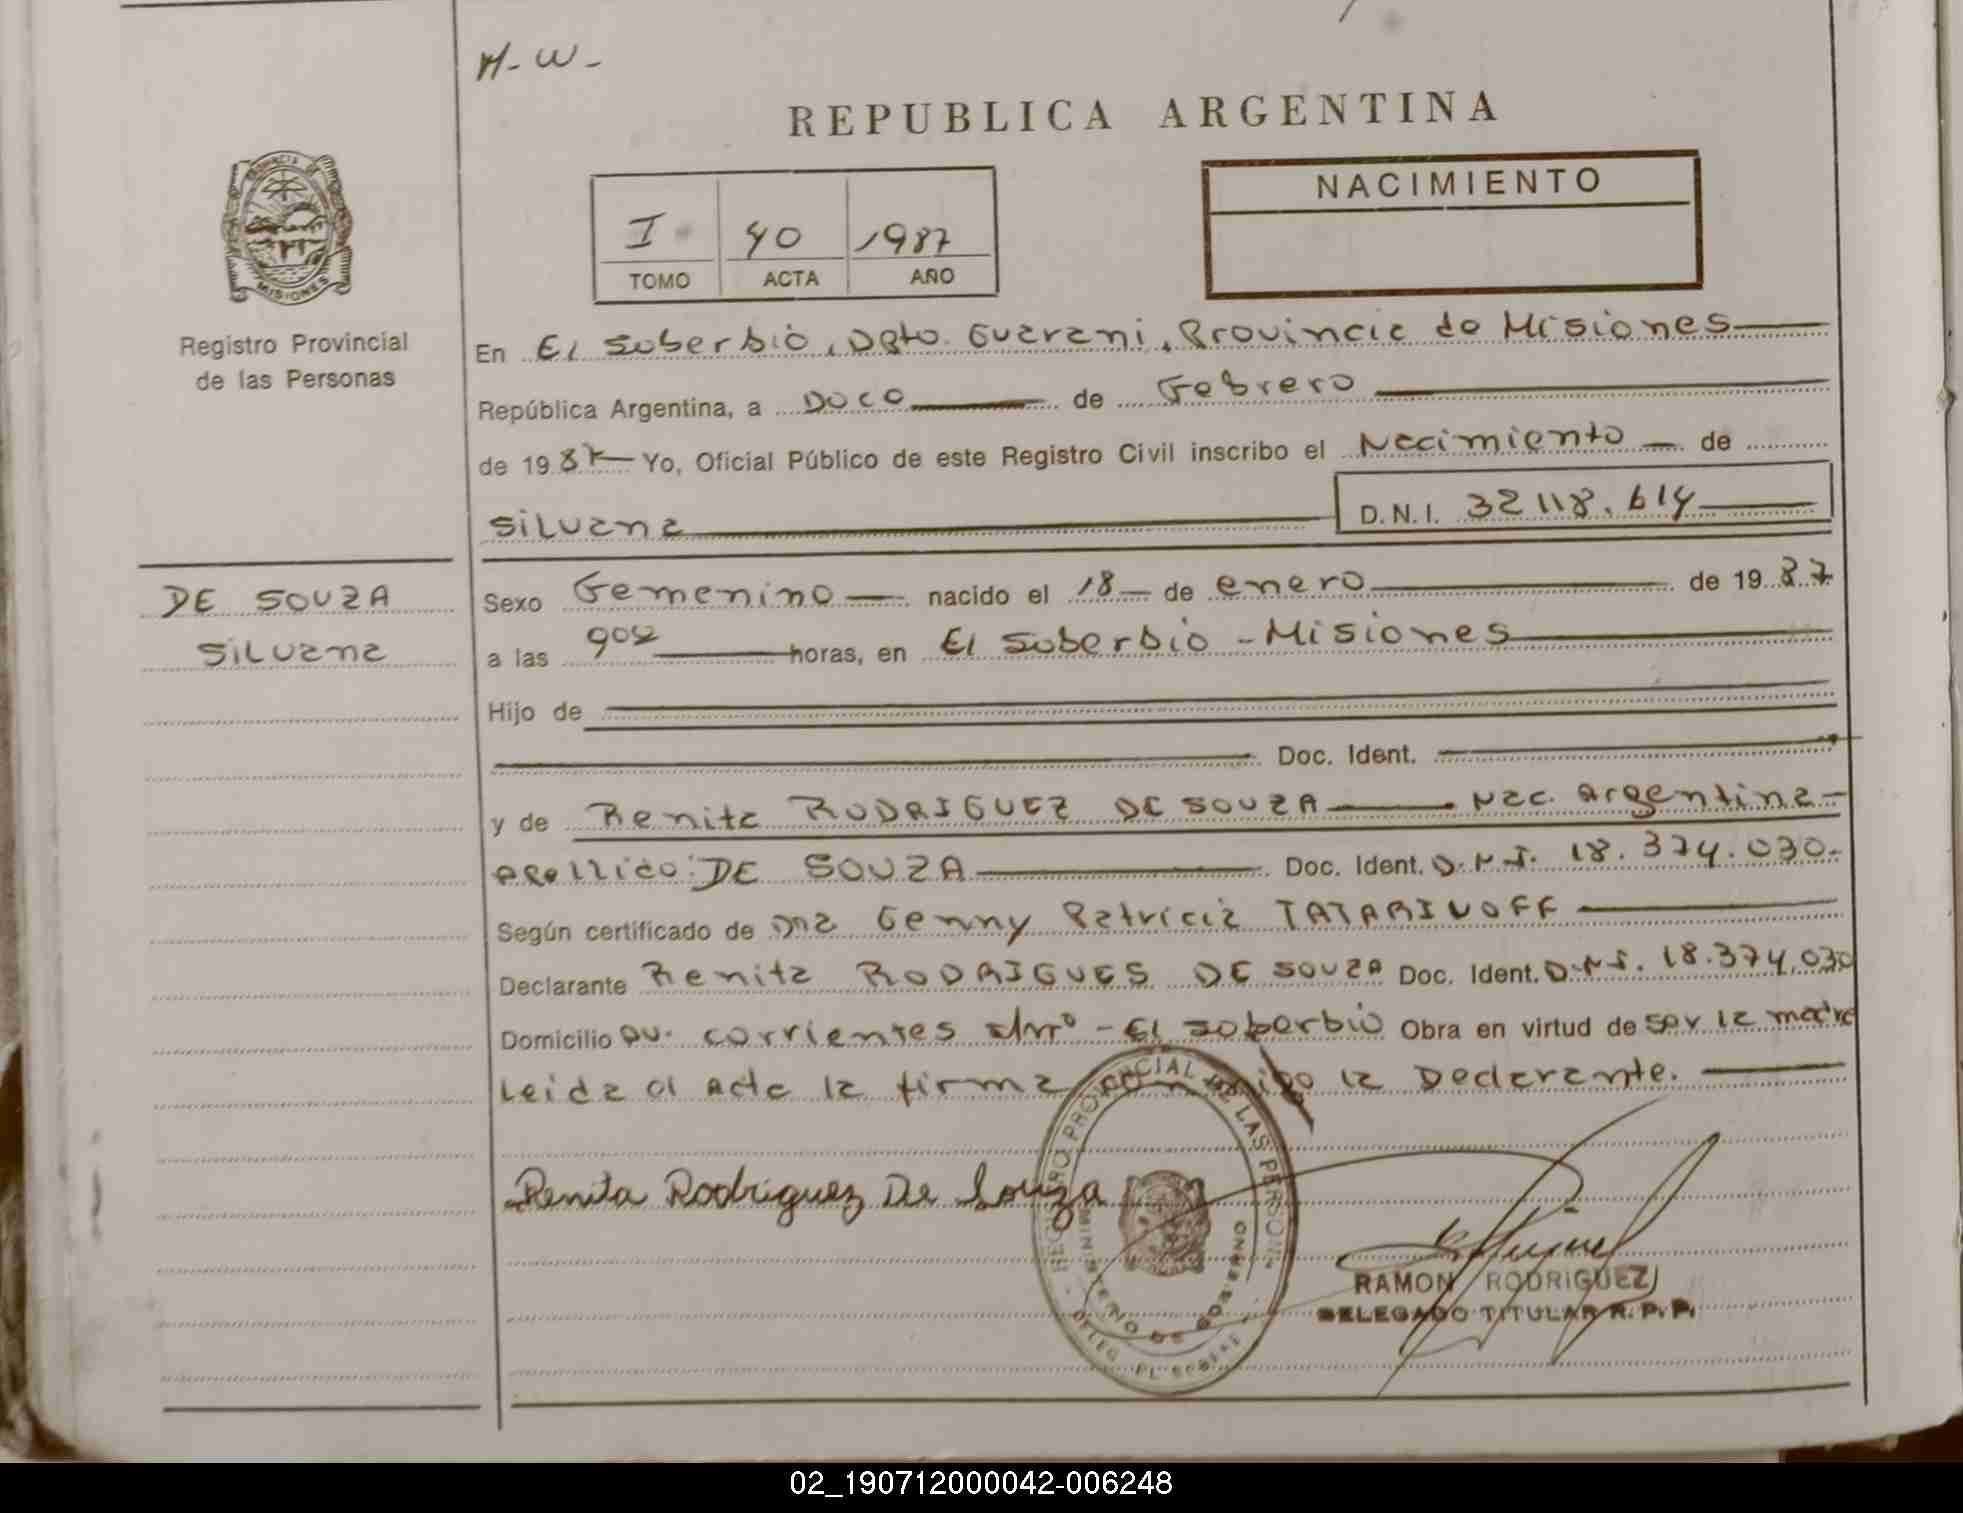 H-W-
REPUBLICA ARGENTINA
NACIMIENTO
I 40 1987
TOMO ACTA AÑO
PROVINCIA DE MISIONES
Registro Provincial
de las Personas
En El soberbio, Dpto. Guarani, Provincia de Misiones
República Argentina, a Doce de Febrero
de 1987 Yo, Oficial Público de este Registro Civil inscribo el Nacimiento de
Silvana D.N.I. 32118.614
DE SOUZA
Silvana
Sexo Femenino nacido el 18 de enero de 1987
a las 9 horas, en El Soberbio - Misiones
Hijo de
Doc. Ident.
y de Renita RODRIGUEZ DE SOUZA Nac. Argentina
apellido: DE SOUZA Doc. Ident. D.N.I. 18.374.030
Según certificado de Dra Genny Patricia TATARINOFF
Declarante Renita RODRIGUES DE SOUZA Doc. Ident. D.N.I. 18.374.030
Domicilio Av. corrientes s/nº - El soberbio Obra en virtud de ser la madre
Leida el Acta la firma la Declarante.
Renita Rodriguez De Souza
REGISTRO PROVINCIAL DE LAS PERSON
MINISTERIO DE GOBIERNO
DELEG. EL SOBERBIO
RAMON RODRIGUEZ
DELEGADO TITULAR R. P. P.
02_190712000042-006248